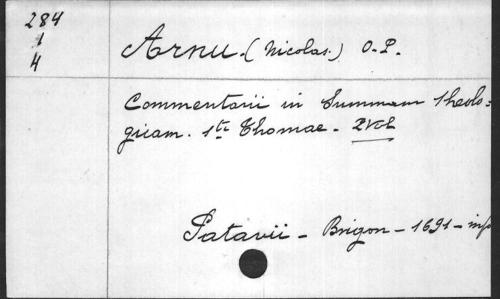 284
1
4
Arnu. (Nicolas.) O.P.
Commentarii in Summam theolo=
gicam. 1ti Thomae. 2 Vol
Patavii - Brigon - 1691 - inf